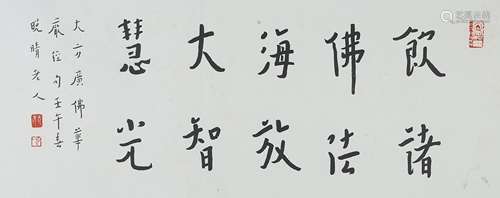 飲諸
佛法
海放
大智
慧光
大方廣佛華
嚴經句壬午春
晚晴老人